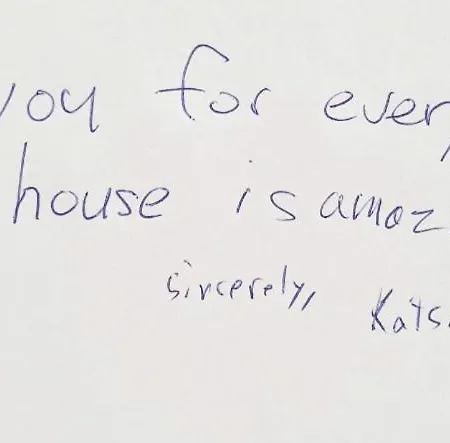 you for ever
house is amaz
sincerely, Kats